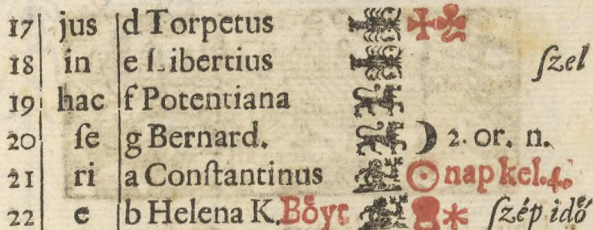 17 jus d Torpetus
18 in e Libertius ſzel
19 hac f Potentiana
20 ſe g Bernard. 2. or. n.
21 ri a Conſtantinus nap kel. 4.
22 e b Helena K. Boͤyt ſzép idoͤ